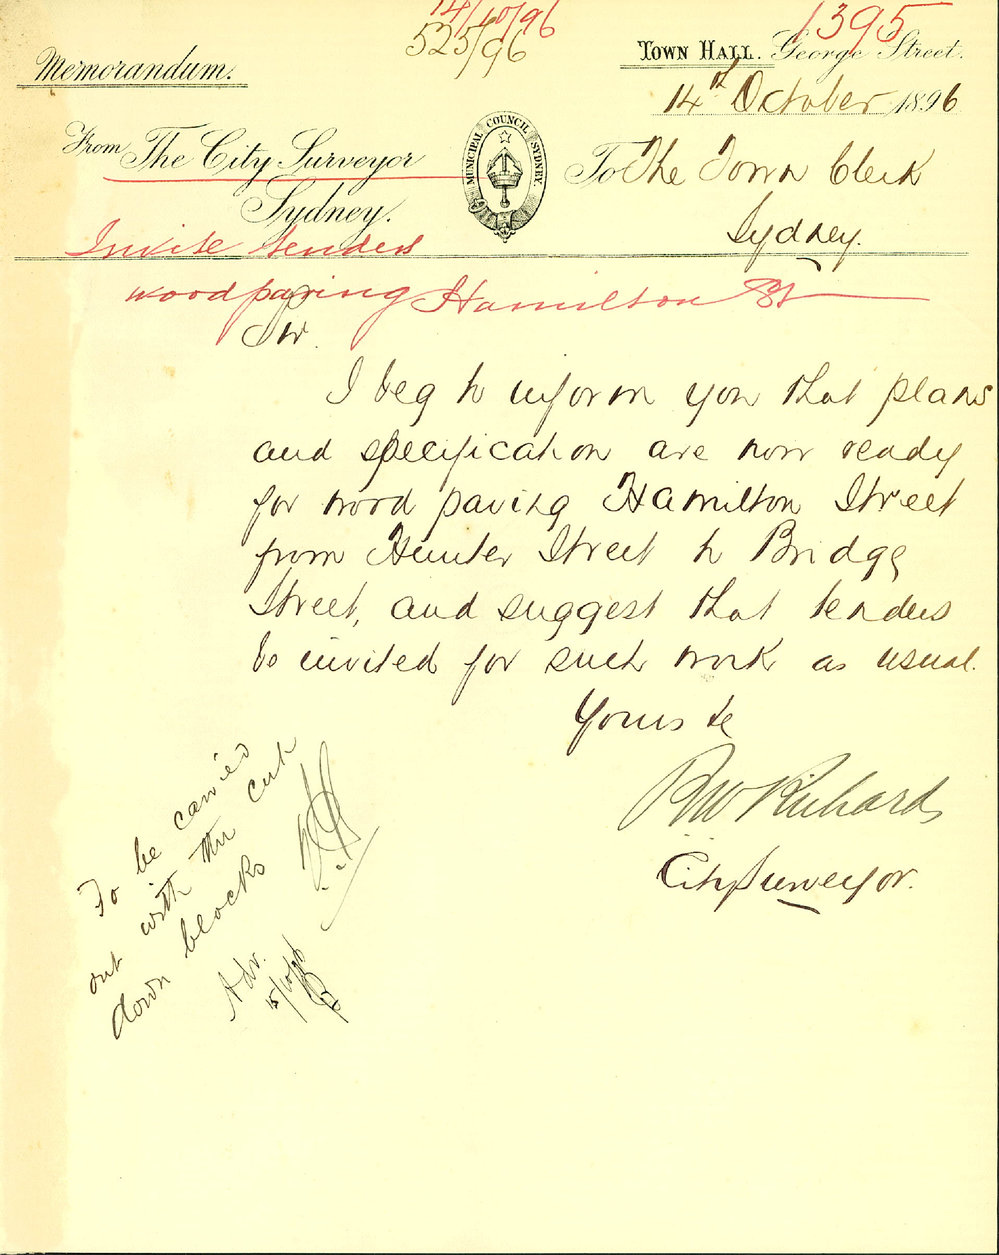 14/10/96
525/96
1395
Memorandum.
Town Hall. George Street.
14th October 1896
From The City Surveyor
Sydney.
MUNICIPAL COUNCIL SYDNEY.
To The Town Clerk
Sydney.
Invite tenders
woodpaving Hamilton St
Sir.
I beg to inform you that plans
and specification are now ready
for wood paving Hamilton Street
from Hunter Street to Bridge
Street, and suggest that tenders
be invited for such work as usual.
Yours &c
R W Richards
City Surveyor.
To be carried
out with the cut
down blocks
Adv.
15/10/96